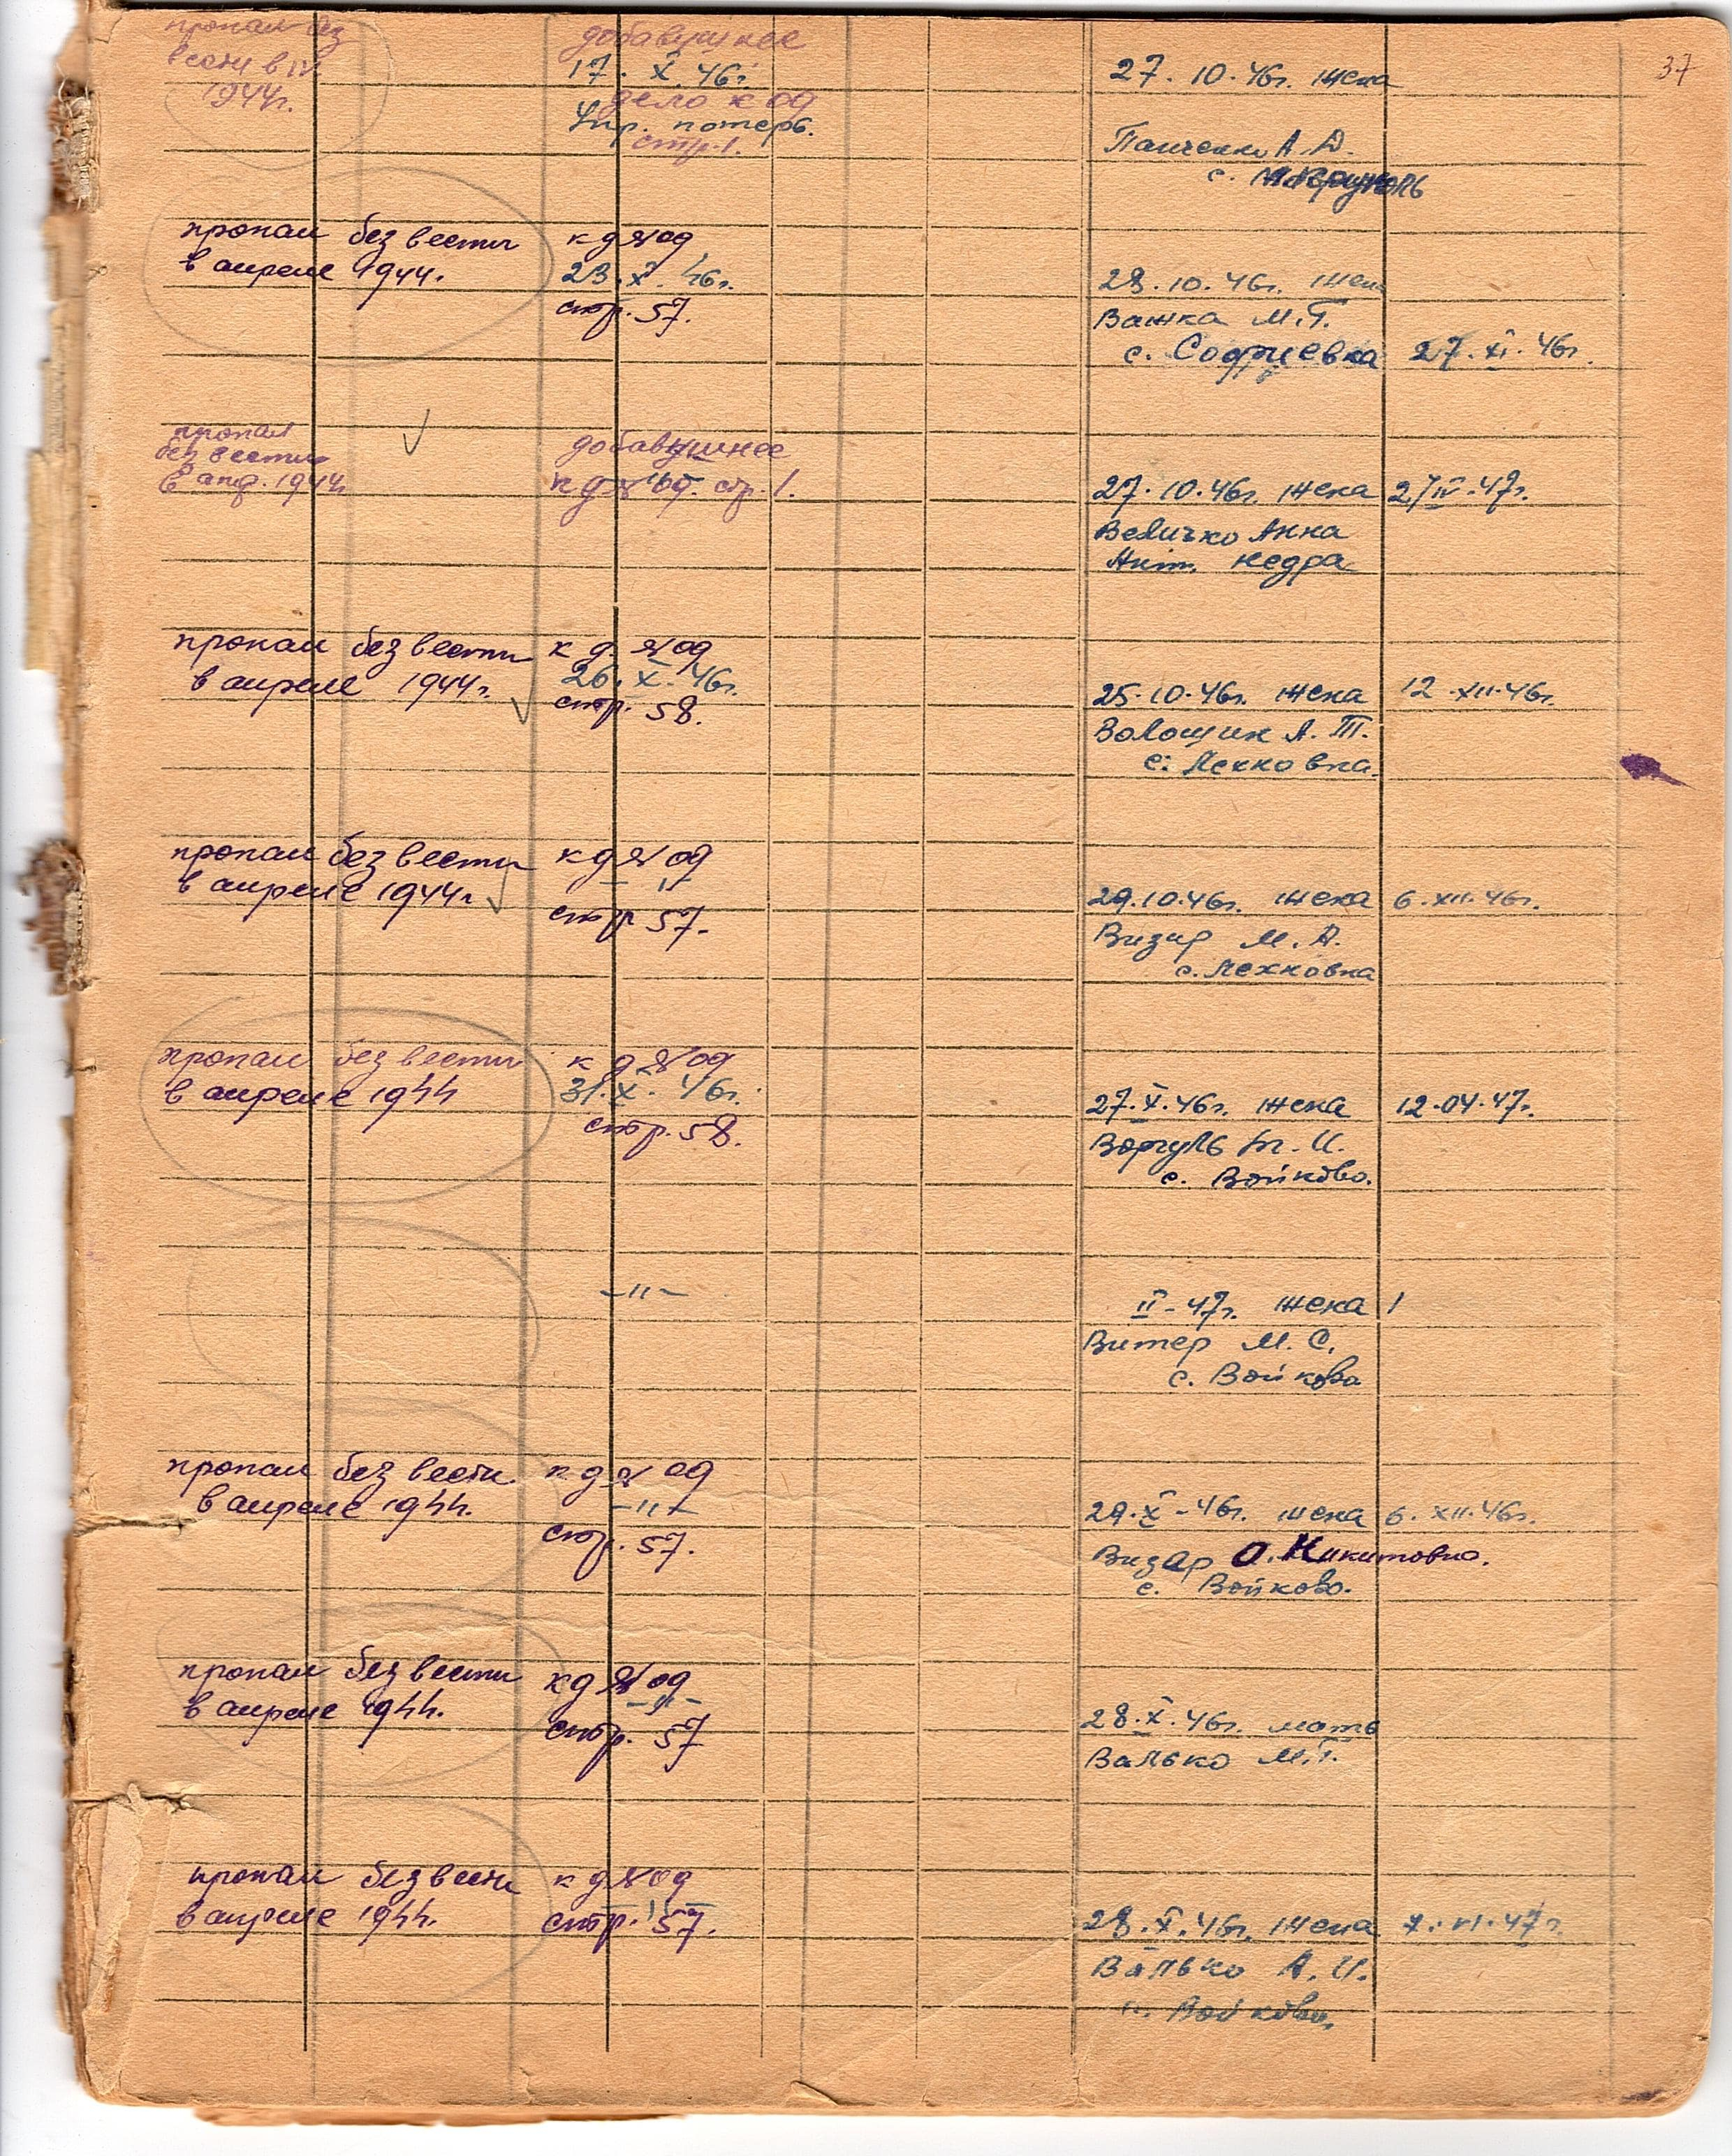 37
пропал без
вести в IV
1944г.
добавушнее
17. X. 46г
дело к од
Упр. потерь.
стр. 1.
27. 10. 46г. жена
Панченко А. Д.
с.
пропал без вести
в апреле 1944г.
к д № од
23. X. 46г.
стр. 57.
28. 10. 46г. жена
Важка М. Г.
с. Софиевка 27. XI. 46г.
пропал
без вести
в апр. 1944
добавушнее
к д № од. стр. 1.
27. 10. 46г. жена 27 IV-47г.
Величко Анна
Кедра
пропал без вести
в апреле 1944г.
к д. № од
26. X. 46г.
стр. 58.
25. 10. 46г. жена 12. XII. 46г.
Волощик А. Т.
с. Лехновка.
пропал без вести
в апреле 1944г
к д № од
— " —
стр 57.
29. 10. 46г. жена 6. XII. 46г.
Визир М. А.
с. Лехновка
пропал без вести
в апреле 1944
к д № од
31. X. 46г.
стр. 58.
27. X. 46г. жена 12. 04. 47г.
Воргуль М. И.
с. Войково.
— " —
II - 47г. жена
Витер М. С.
с. Войкова
пропал без вести
в апреле 1944.
к д № од
— " —
стр. 57.
29. X - 46г. жена 6. XII. 46г.
Визар О. Никитовна.
с. Войково.
пропал без вести
в апреле 1944.
к д № од
— " —
стр. 57
28. X. 46г. мать
Валько М. Г.
пропал без вести
в апреле 1944.
к д № од
— " —
стр. 57.
28. X. 46г. жена 7. VI. 47г.
Валько А. И.
с. Войково.